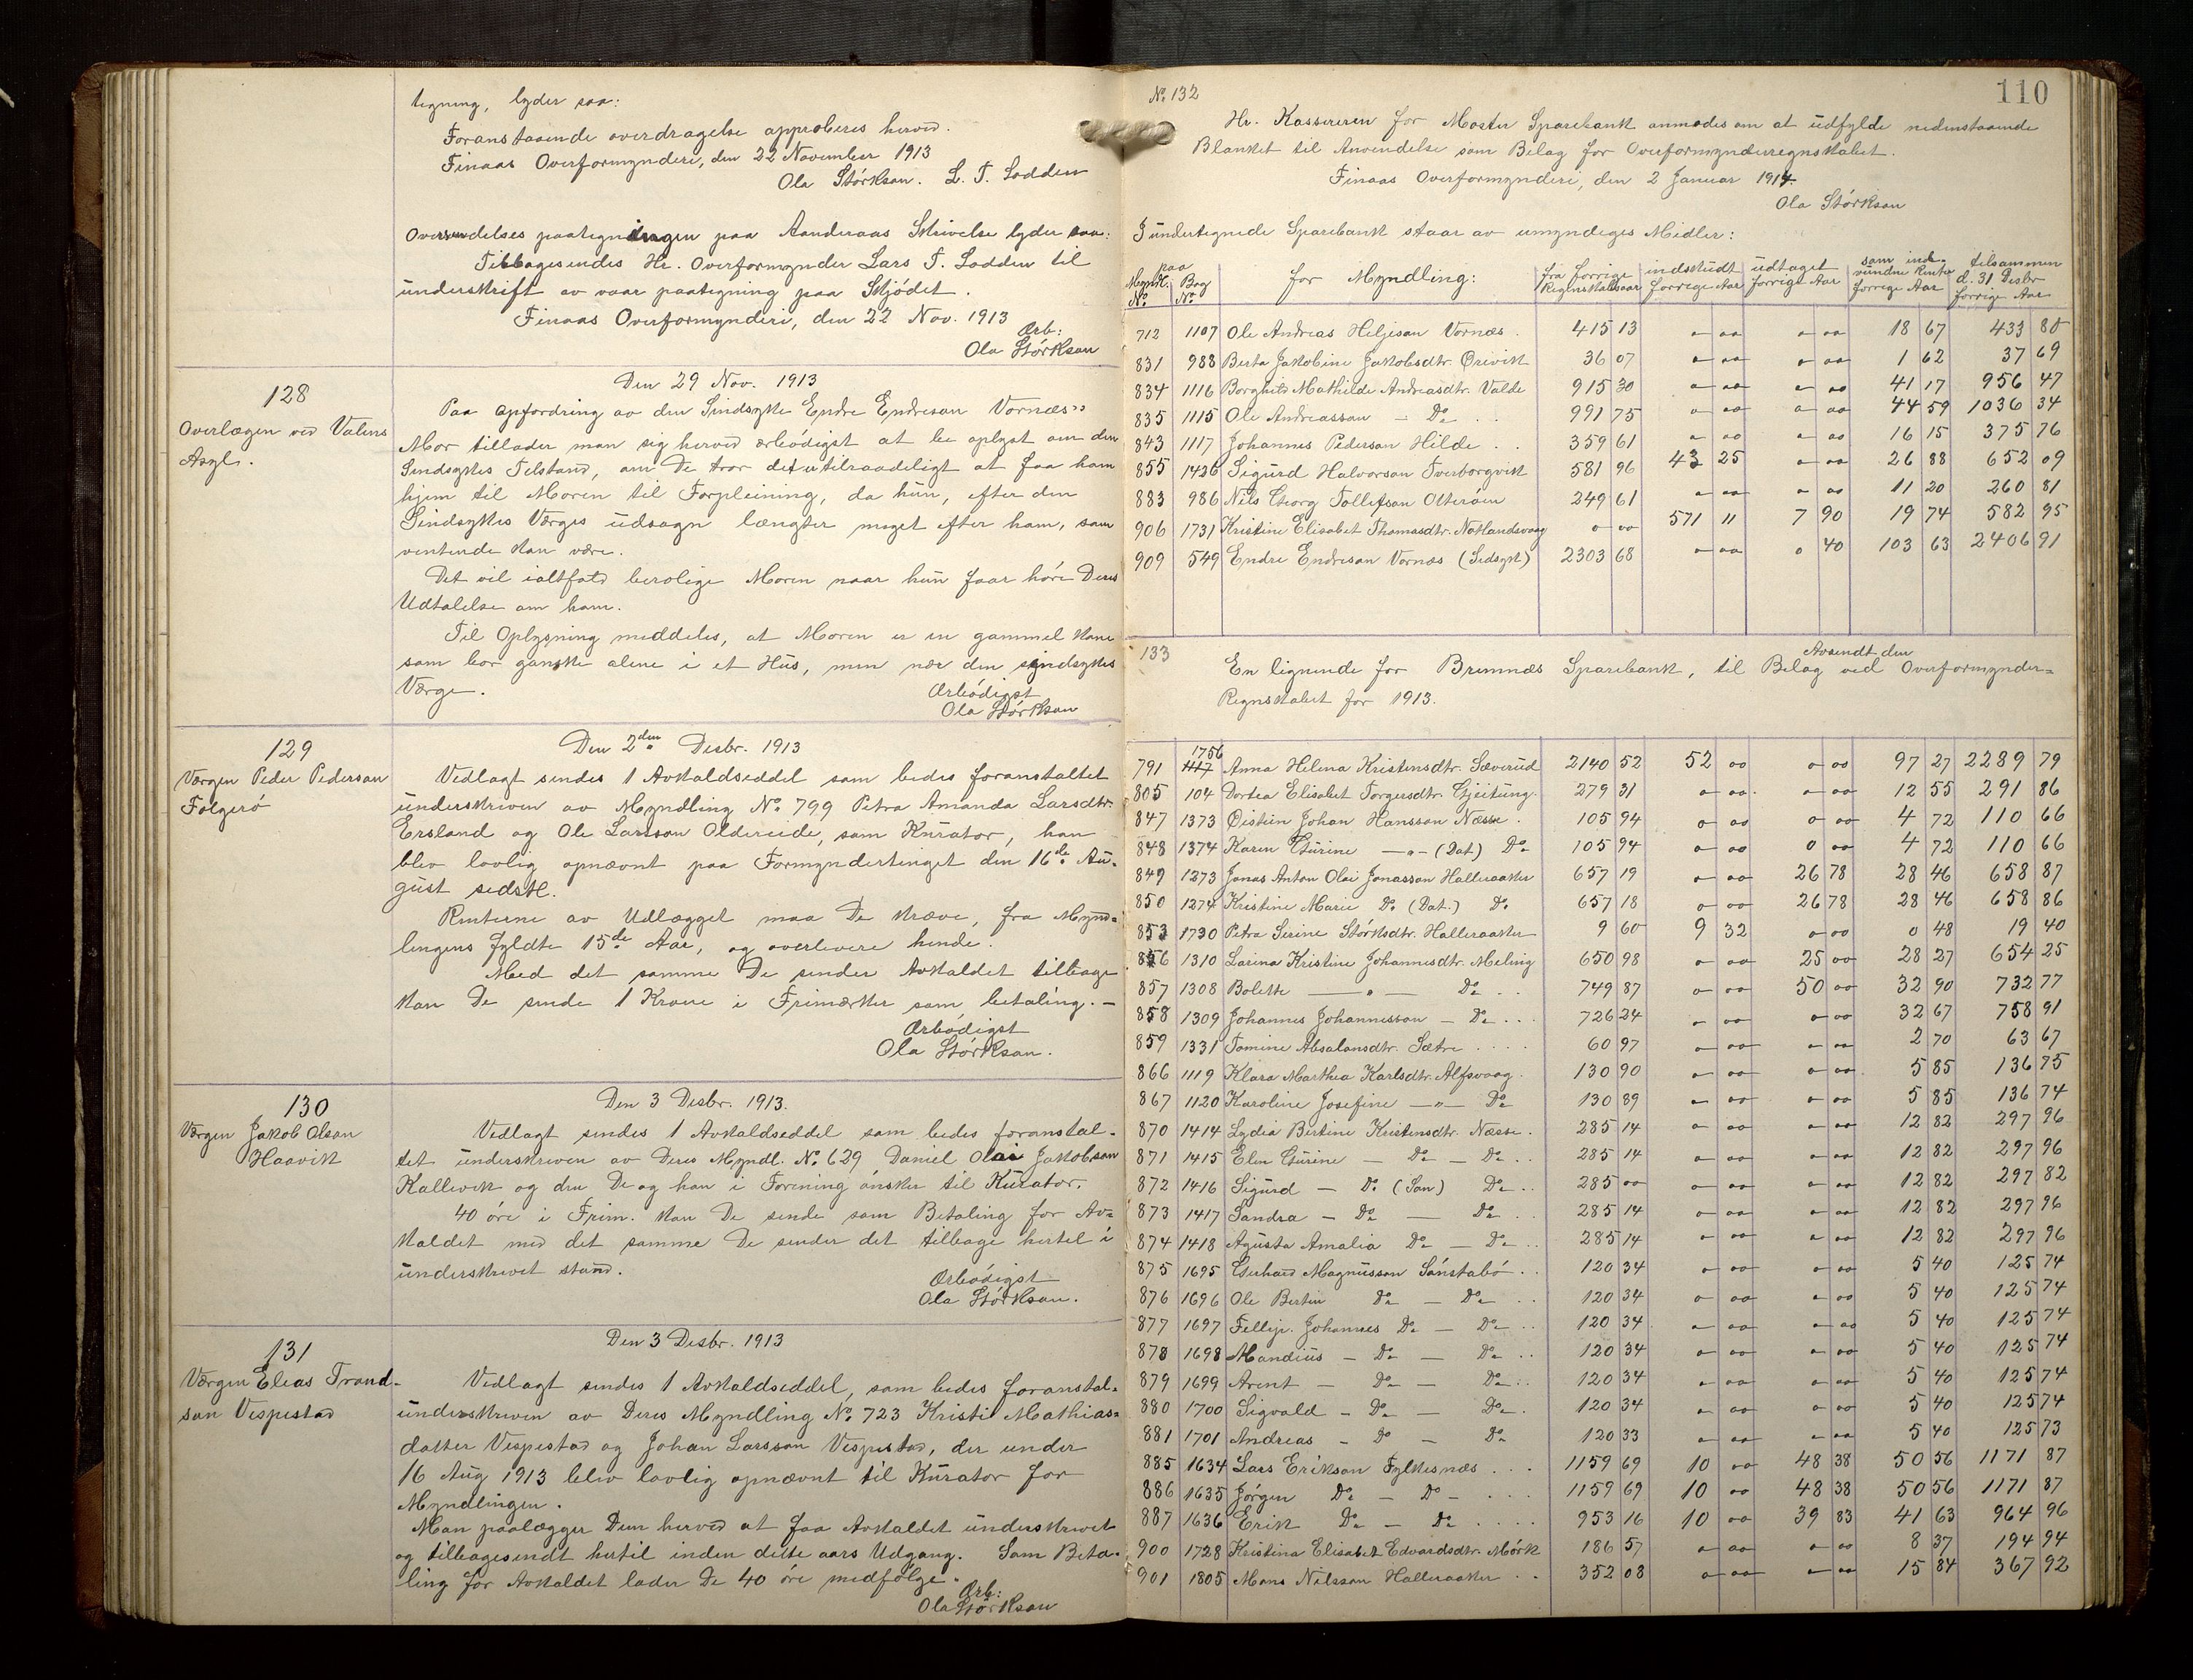 tegning, lyder saa:
Foranstaaende overdragelse approberes herved.
Finaas Overformynderi, den 22 November 1913
Ola Störkson. L. T. Lodden
Oversendelses paategningen paa Aanderaas Skrivelse lyder saa:
Tilbagesendes Hr. Overformynder Lars T. Lodden til
underskrift av vaar paategning paa Skjödet.
Finaas Overformynderi, den 22 Nov. 1913
Ærb:
Ola Störkson
128
Overlægen ved Valens
Asyl.
Den 29 Nov. 1913
Paa opfordring av den Sindsyke Endre Endreson Vornæs's
Mor tillader man sig herved ærbödigst at be oplyst om den
Sindsykes Tilstand, om De tror det utilraadeligt at faa ham
hjem til Moren til Forpleining, da hun, efter den
Sindsykes Værges udsagn længter meget efter ham, som
ventende kan være.
Det vil ialtfald berolige Moren naar hun faar höre Deres
Udtalelse om ham.
Til Oplysning meddeles, at Moren er en gammel Kone
som bor ganske alene i et Hus, men nær den sindsykes
Værge.
Ærbödigst
Ola Störkson
129
Værgen Peder Pederson
Folgerö
Den 2den Desbr. 1913
Vedlagt sendes 1 Avkaldseddel som bedes foranstaltet
underskreven av Myndling No. 799 Petra Amanda Larsdtr.
Ersland og Ole Larsson Oldereide, som Kurator, han
blev lovlig opnævnt paa Formyndertinget den 16de Au-
gust sidstl.
Renterne av Udlægget maa De kræve, fra Mynd-
lingens fyldte 15de Aar, og overlevere hende.
Med det samme De sender Avkaldet tilbage
kan De sende 1 Krone i Frimærker som betaling. —
Ærbödigst
Ola Störkson.
130
Værgen Jakob Olson
Haavik
Den 3 Desbr. 1913.
Vedlagt sendes 1 Avkaldseddel som bedes foranstal-
tet underskreven av Deres Myndl. No. 629 Daniel Olai Jakobson
Kallevik og den De og han i Forening önsker til Kurator.
40 öre i Frim. kan De sende som Betaling for Av-
kaldet med det samme De sender det tilbage hertil i
underskrevet stand.
Ærbödigst
Ola Störkson.
131
Værgen Elias Trond-
son Vespestad
Den 3 Desbr. 1913
Vedlagt sendes 1 Avkaldseddel, som bedes foranstal-
underskreven av Deres Myndling No. 723 Kristi Mathias-
datter Vespestad og Johan Larsson Vespestad, der under
16 Aug 1913 blev lovlig opnævnt til Kurator for
Myndlingen.
Man paalægger Dem herved at faa Avkaldet underskrevet
og tilbagesendt hertil inden dette aars Udgang. Som Beta-
ling for Avkaldet lader De 40 öre medfölge.
Ærb:
Ola Störkson
110
No. 132
Hr. Kassereren for Moster Sparebank anmodes om at udfylde nedenstaaende
Blanket til Anvendelse som Belag for Overformynderregnskabet.
Finaas Overformynderi, den 2 Januar 1914.
Ola Störkson
I undertegnede Sparebank staar av umyndiges Midler:
Myndl. No. paa Bog No. for Myndling: fra forrige Regnskabsaar indskudt forrige Aar udtaget forrige Aar som ind-vundne Renter forrige Aar tilsammen d. 31 Desbr forrige Aar
712 1107 Ole Andreas Heljeson Vornæs. 415 13 0 00 0 00 18 67 433 80
831 988 Berta Jakobine Jakobsdtr. Örevik 36 07 0 00 0 00 1 62 37 69
834 1116 Borghild Mathilde Andreasdtr. Valde 915 30 0 00 0 00 41 17 956 47
835 1115 Ole Andreasson — Do. . . 991 75 0 00 0 00 44 59 1036 34
843 1117 Johannes Pederson Hilde . . 359 61 0 00 0 00 16 15 375 76
855 1426 Sigurd Halvorson Tverborgvik 581 96 43 25 0 00 26 88 652 09
883 986 Nils Georg Tollefson Otteröen 249 61 0 00 0 00 11 20 260 81
906 1731 Kristine Elisabet Thomasdtr. Notlandsvaag 0 00 571 11 7 90 19 74 582 95
909 549 Endre Endreson Vornæs (Sidsyk) 2303 68 0 00 0 40 103 63 2406 91
133
Avsendt den
En lignende for Bremnæs Sparebank, til Belag ved Overformynder-
Regnskabet for 1913.
791 1756 Anna Helena Kristensdtr. Sæverud 2140 52 52 00 0 00 97 27 2289 79
805 104 Dortea Elisabet Torgersdtr. Gjeitung. 279 31 0 00 0 00 12 55 291 86
847 1373 Östein Johan Hansson Næsse. 105 94 0 00 0 00 4 72 110 66
848 1374 Karen Gurine —"— (Dat) Do. 105 94 0 00 0 00 4 72 110 66
849 1273 Jonas Anton Olai Jonasson Halleraaker 657 19 0 00 26 78 28 46 658 87
850 1274 Kristine Marie Do. (Dat.) Do. 657 18 0 00 26 78 28 46 658 86
853 1730 Petra Serine Störksdtr. Halleraaker 9 60 9 32 0 00 0 48 19 40
856 1310 Larina Kristine Johannesdtr. Meling 650 98 0 00 25 00 28 27 654 25
857 1308 Bolette —"— Do. . . 749 87 0 00 50 00 32 90 732 77
858 1309 Johannes Johannesson — Do. . . . 726 24 0 00 0 00 32 67 758 91
859 1331 Tomine Absalonsdtr. Sætre . . . . 60 97 0 00 0 00 2 70 63 67
866 1119 Klara Marthea Karlsdtr. Alfsvaag. 130 90 0 00 0 00 5 85 136 75
867 1120 Karoline Josefine —"— Do. 130 89 0 00 0 00 5 85 136 74
870 1414 Lydia Bertine Kristensdtr. Næsse. 285 14 0 00 0 00 12 82 297 96
871 1415 Elen Gurine — Do. — Do. . . 285 14 0 00 0 00 12 82 297 96
872 1416 Sigurd — Do. (Søn) Do. . . 285 00 0 00 0 00 12 82 297 82
873 1417 Sandra — Do. — Do. . . 285 14 0 00 0 00 12 82 297 96
874 1418 Agusta Amalia Do. — Do. . . 285 14 0 00 0 00 12 82 297 96
875 1695 Gerhard Magnusson Sönstabö . . 120 34 0 00 0 00 5 40 125 74
876 1696 Ole Bertin Do. — Do. . . 120 34 0 00 0 00 5 40 125 74
877 1697 Fellip. Johannes Do. — Do. . . 120 34 0 00 0 00 5 40 125 74
878 1698 Mandius — Do. — Do. . . 120 34 0 00 0 00 5 40 125 74
879 1699 Arent — Do. — Do. . . 120 34 0 00 0 00 5 40 125 74
880 1700 Sigvald — Do. — Do. . 120 34 0 00 0 00 5 40 125 74
881 1701 Andreas — Do — Do. 120 33 0 00 0 00 5 40 125 73
885 1634 Lars Erikson Fylkesnæs . . . 1159 69 10 00 48 38 50 56 1171 87
886 1635 Jörgen Do. — Do — . . . 1159 69 10 00 48 38 50 56 1171 87
887 1636 Erik Do. — Do. . . . . 953 16 10 00 39 83 41 63 964 96
900 1728 Kristina Elisabet Edvardsdtr. Mörk 186 57 0 00 0 00 8 37 194 94
901 1805 Mons Nilsson Halleraaker . . 352 08 0 00 0 00 15 84 367 92